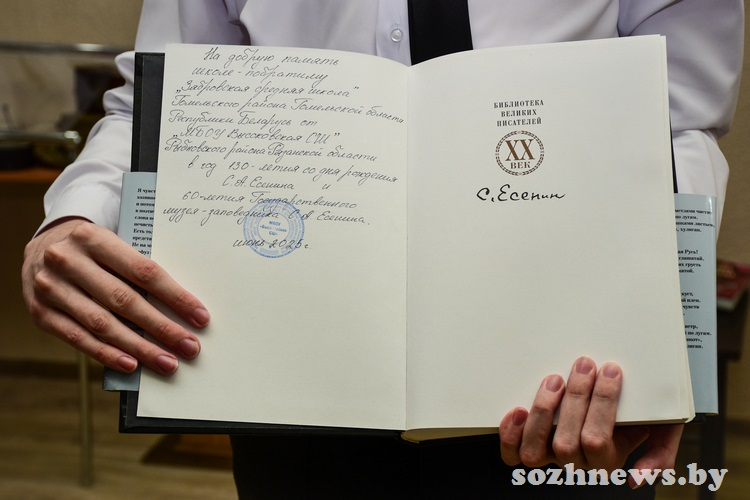 На добрую память
школе-побратиму
„Зябровская средняя школа"
Гомельского района Гомельской области
Республики Беларусь от
„МБОУ Высоковская СШ"
Рыбновского района Рязанской области
в год 130-летия со дня рождения
С.А. Есенина и
60-летия Государственного
музея-заповедника С.А. Есенина.
июнь 2025 г
БИБЛИОТЕКА
ВЕЛИКИХ
ПИСАТЕЛЕЙ
XX
ВЕК
С. Есенин
sozhnews.by